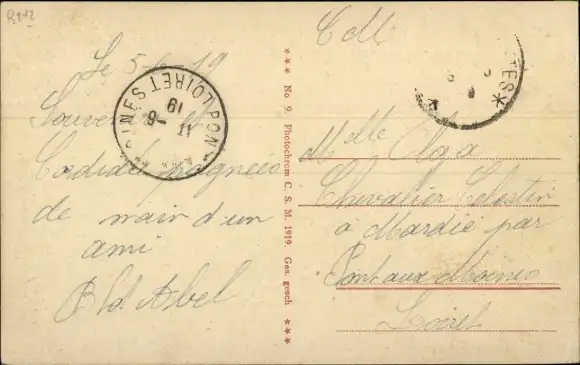 R112
Le 5-6-19
Souvenir et
Cordiale poignées
de main d'un
ami
Abel
LOIRET
11 -6
19
*** No 9. Photochrom C. S. M. 1919. Ges. gesch ***
C M
TES *
Melle Olga
Chevalier Célestin
à Mardié par
Pont aux Moines
Loiret